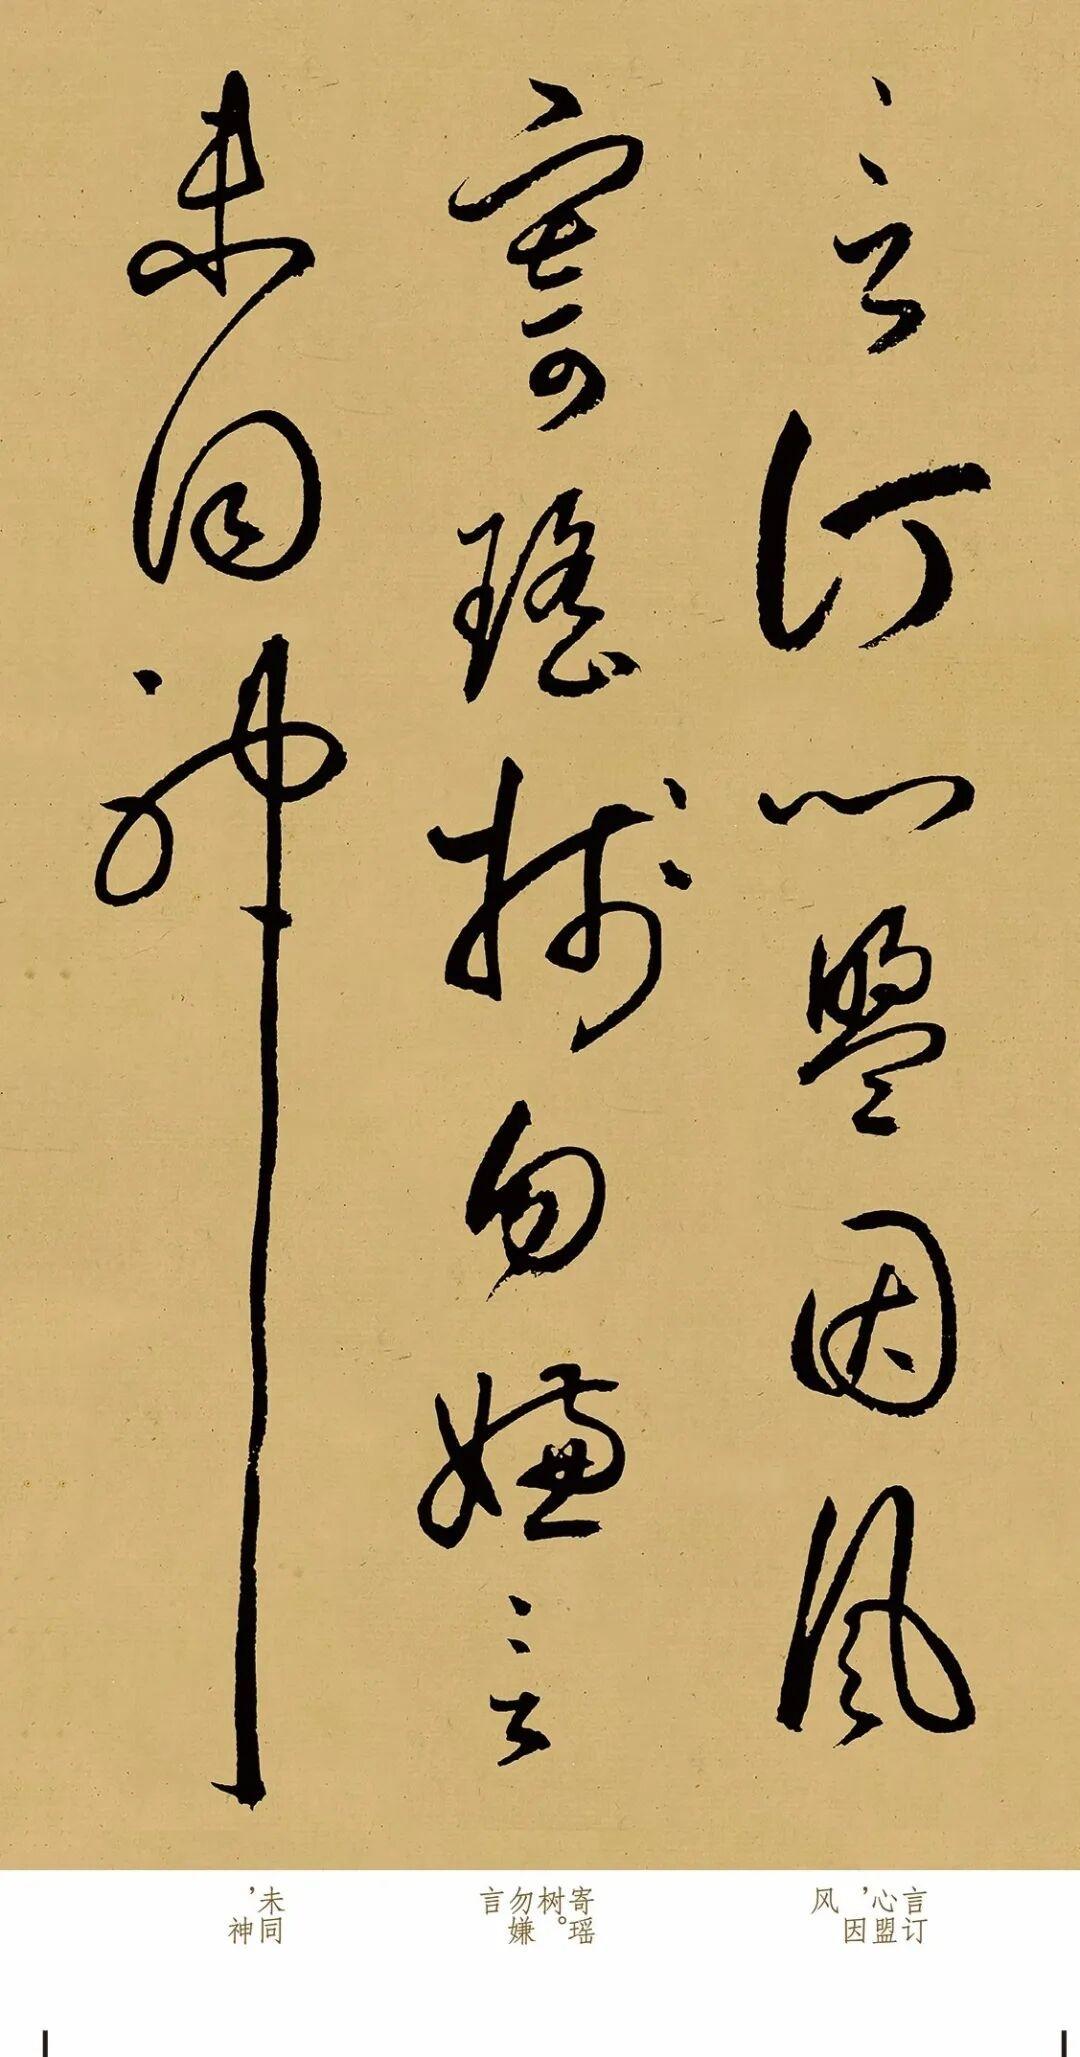 言订心盟因风
寄瑶树勿嫌言
未同神
言订
心盟
，因
风
寄瑶
树。
勿嫌
言
未同
，神